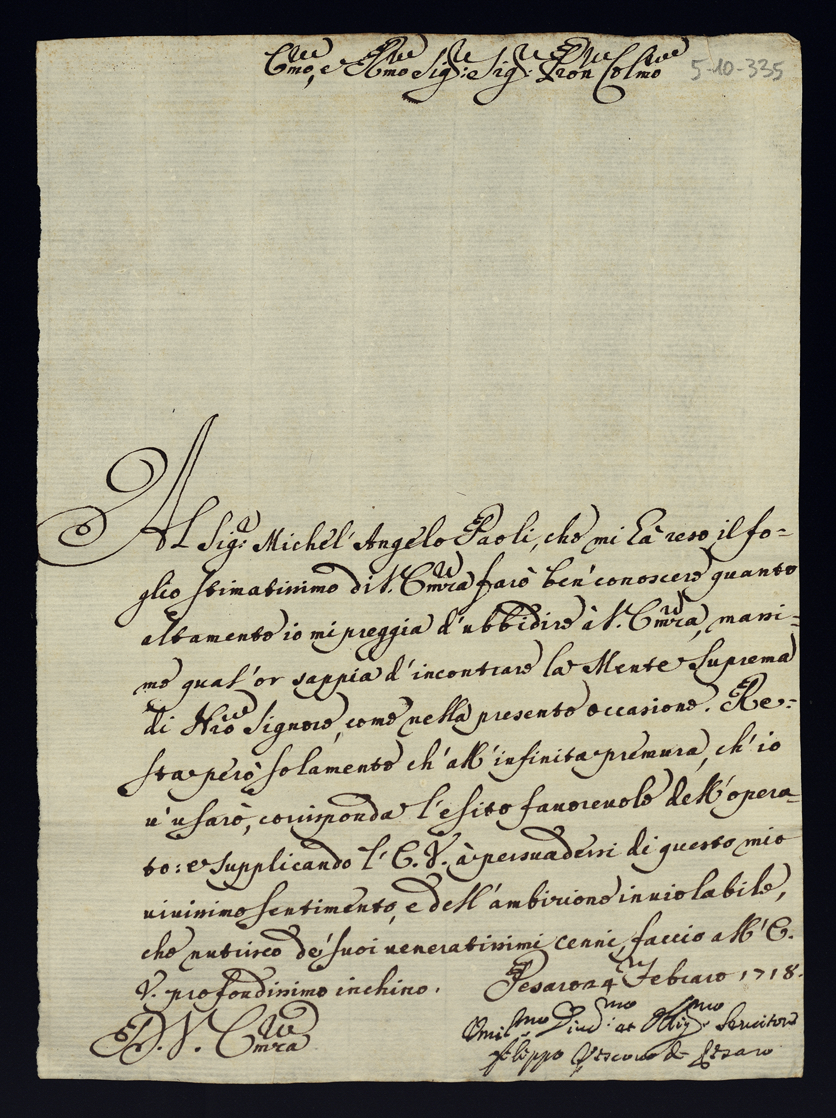 Emo, e Rmo Sig:re Sig:re Pron Colmo
5-10-335
Al Sig:r Michel'Angelo Paoli, che mi hà reso il fo=
glio stimatissimo di V. Emza farò ben'conoscere quanto
altamente io mi preggia d'ubbidire à V. Emza, massi=
me qual'or sappia d'incontrare la Mente Suprema
di Nro Signore, come nella presente occasione. Re=
sta però solamente ch'all'infinita premura, ch'io
v'usarò, corrisponda l'esito favorevole dell'opera=
to: e supplicando l'E. V. à persuadersi di questo mio
vivissimo sentimento, e dell'ambizione inviolabile,
che nutrisco de' suoi veneratissimi cenni, faccio all'E.
V. profondissimo inchino. Pesaro 24 Febraro 1718.
D. V. Emza
Umil:mo Div:mo et Oblig:mo Servitore
Filippo Vescovo di Pesaro